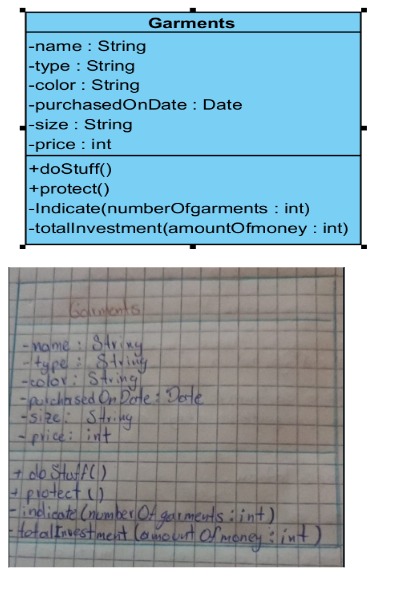 Garments
-name : String
-type : String
-color : String
-purchasedOnDate : Date
-size : String
-price : int
+doStuff()
+protect()
-Indicate(numberOfgarments : int)
-totalInvestment(amountOfmoney : int)
Garments
-name : String
-type : String
-color : String
-purchasedOnDate : Date
-size : String
-price : int
+ doStuff()
+ protect ()
-indicate (numberOfgarments : int)
-totalInvestment (amountOfmoney : int)